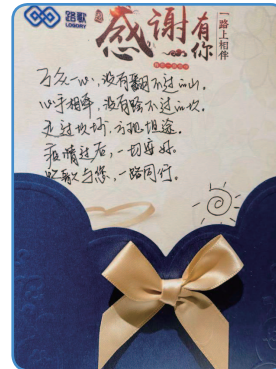 路歌
LOGORY
感谢有你
一路上相伴
万众一心，没有翻不过的山。
心手相牵，没有跨不过的坎。
走过坎坷，方现坦途。
疫情过后，一切安好。
路歌与您，一路同行。